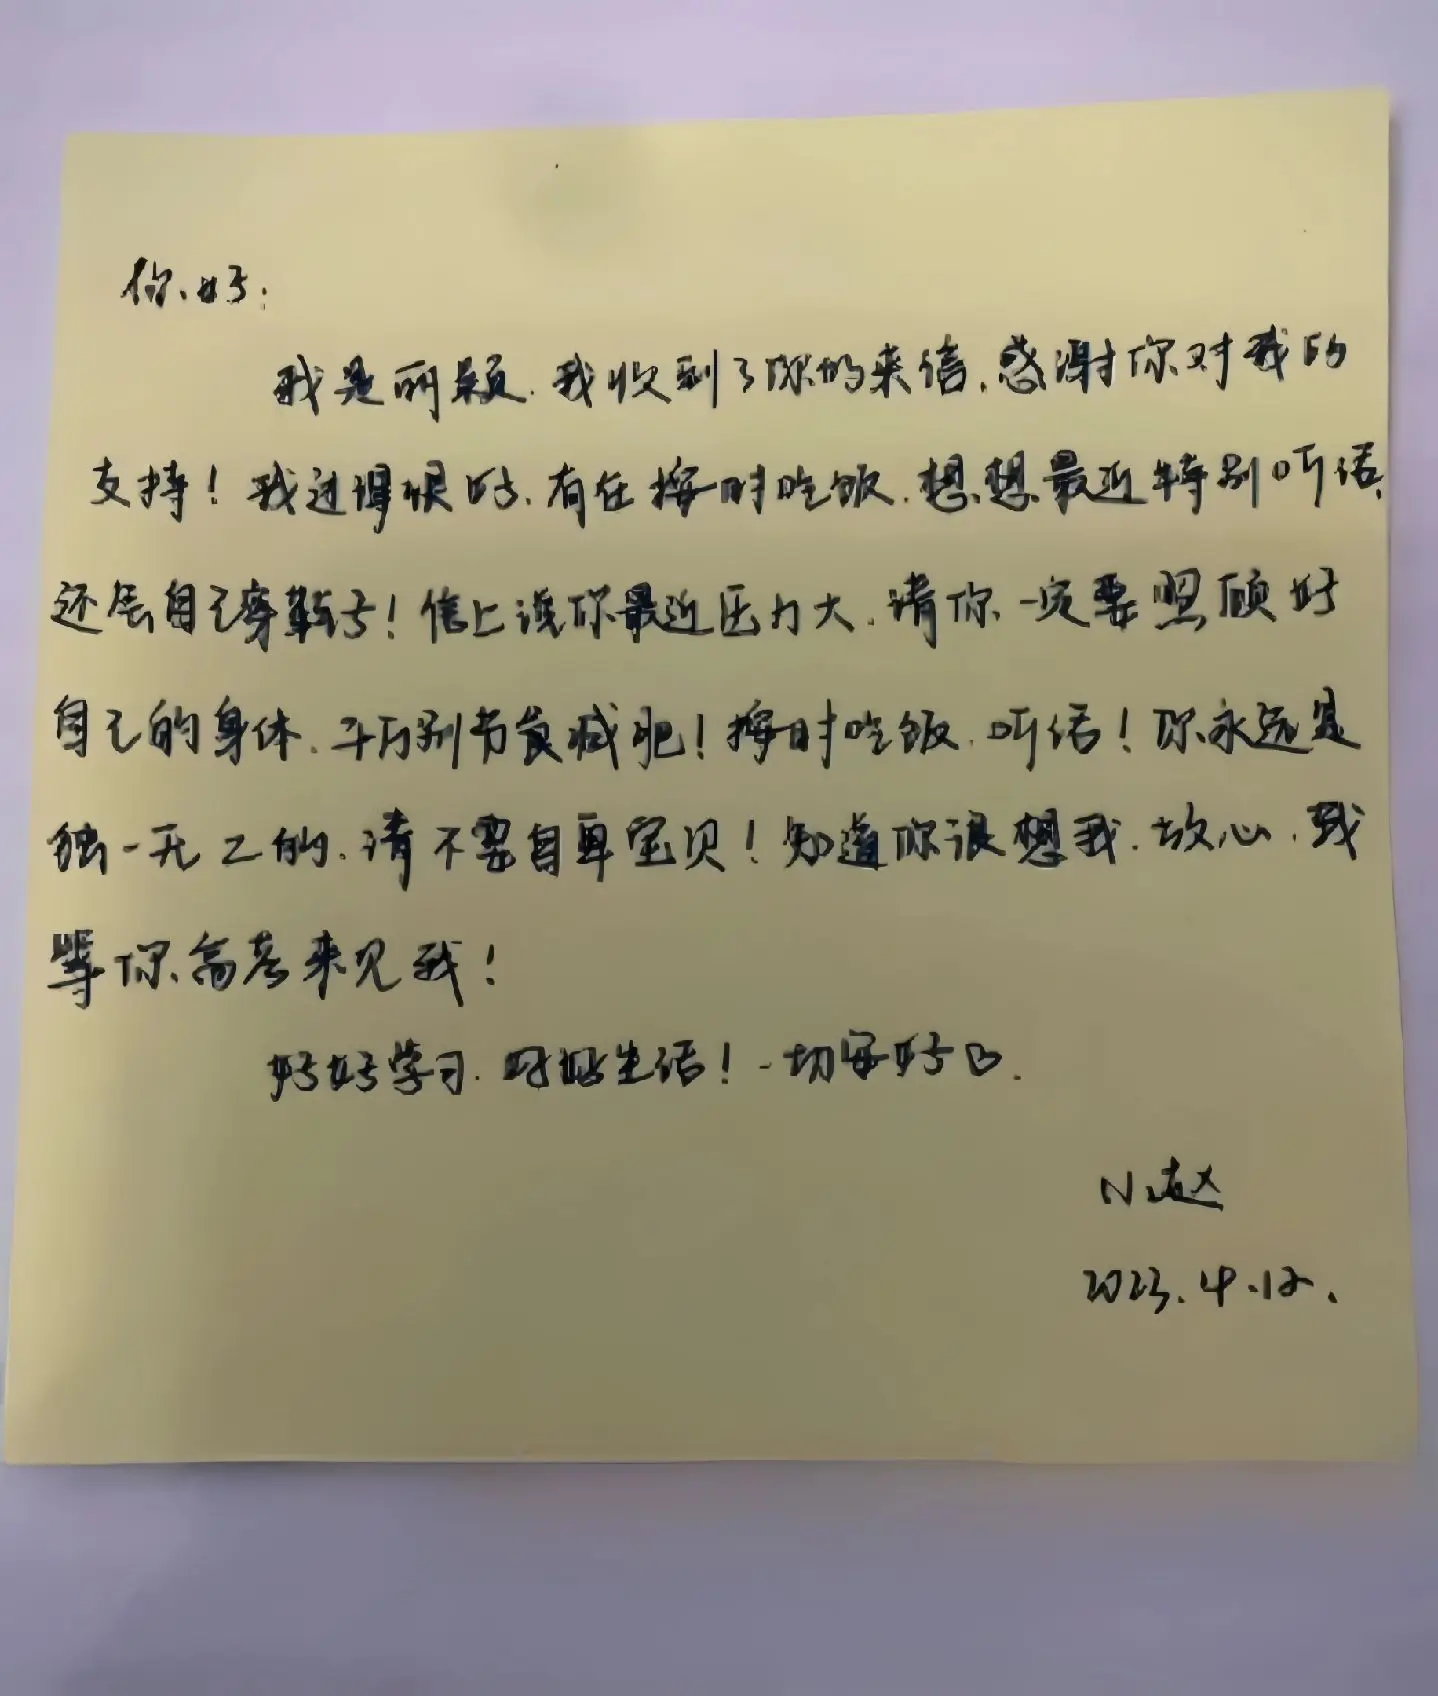 你好:
我是丽颖.我收到了你的来信.感谢你对我的
支持!我过得很好.有在按时吃饭.想想最近特别听话.
还会自己穿鞋子!信上说你最近压力大.请你一定要照顾好
自己的身体.千万别节食减肥!按时吃饭.听话!你永远是
独一无二的.请不要自卑宝贝!知道你很想我.放心.我
等你高考来见我!
好好学习.好好生活!一切安好
N赵
2023.4.12.